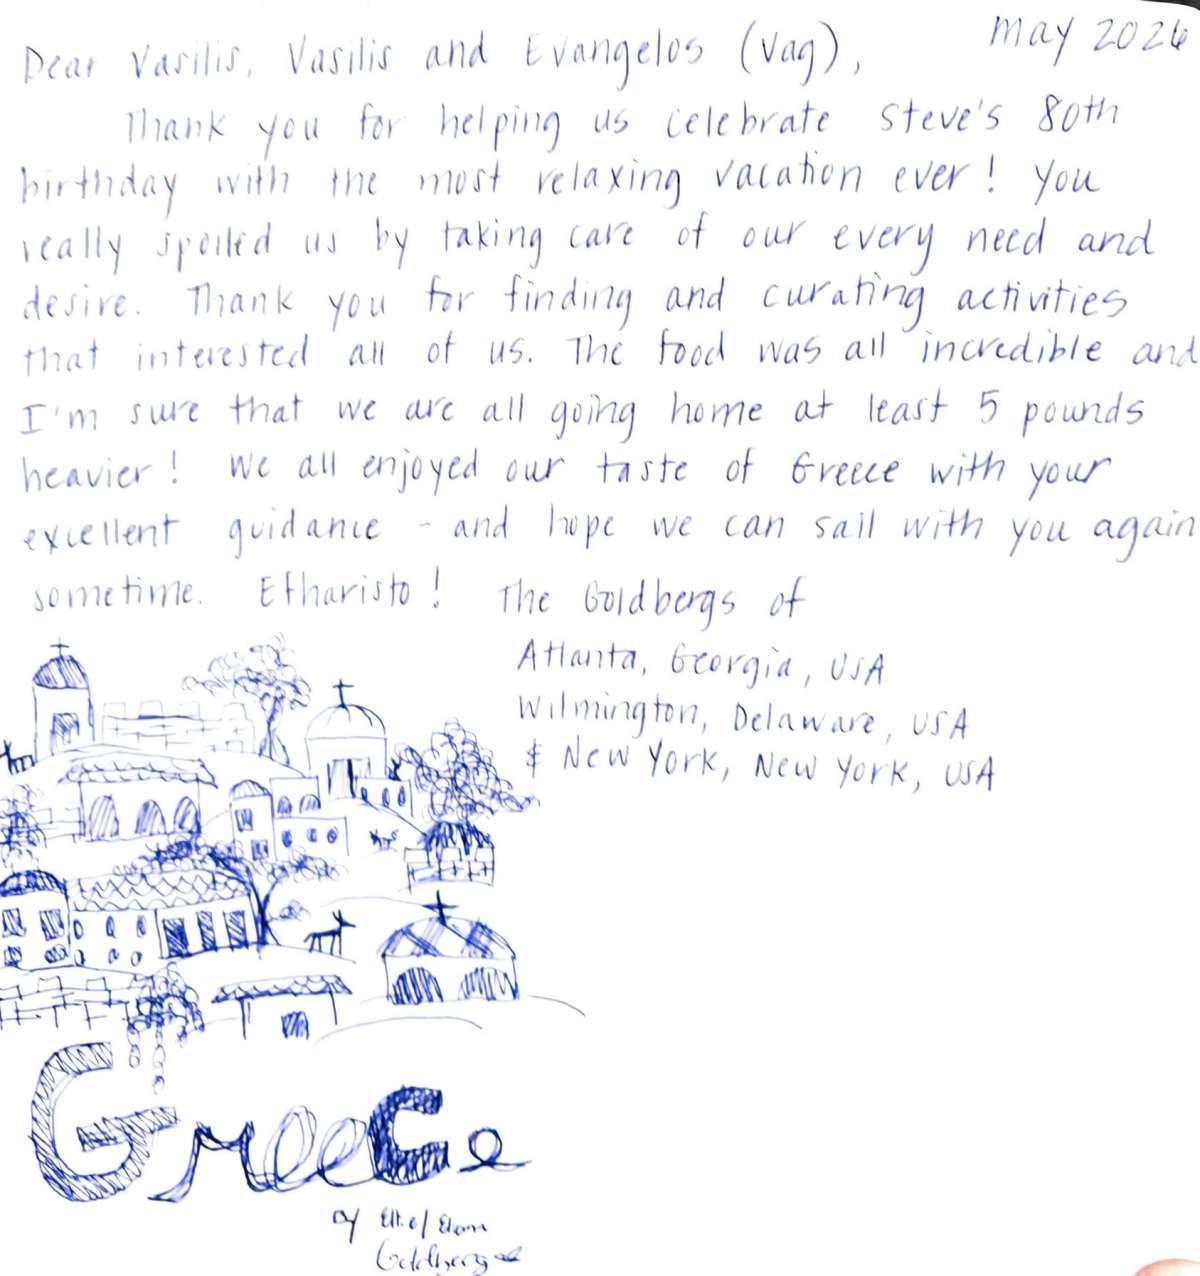 May 2026
Dear Vasilis, Vasilis and Evangelos (Vag),
Thank you for helping us celebrate Steve's 80th
birthday with the most relaxing vacation ever! You
really spoiled us by taking care of our every need and
desire. Thank you for finding and curating activities
that interested all of us. The food was all incredible and
I'm sure that we are all going home at least 5 pounds
heavier! We all enjoyed our taste of Greece with your
excellent guidance - and hope we can sail with you again
sometime. Efharisto! The Goldbergs of
Atlanta, Georgia, USA
Wilmington, Delaware, USA
& New York, New York, USA
Greece
by
Goldberg